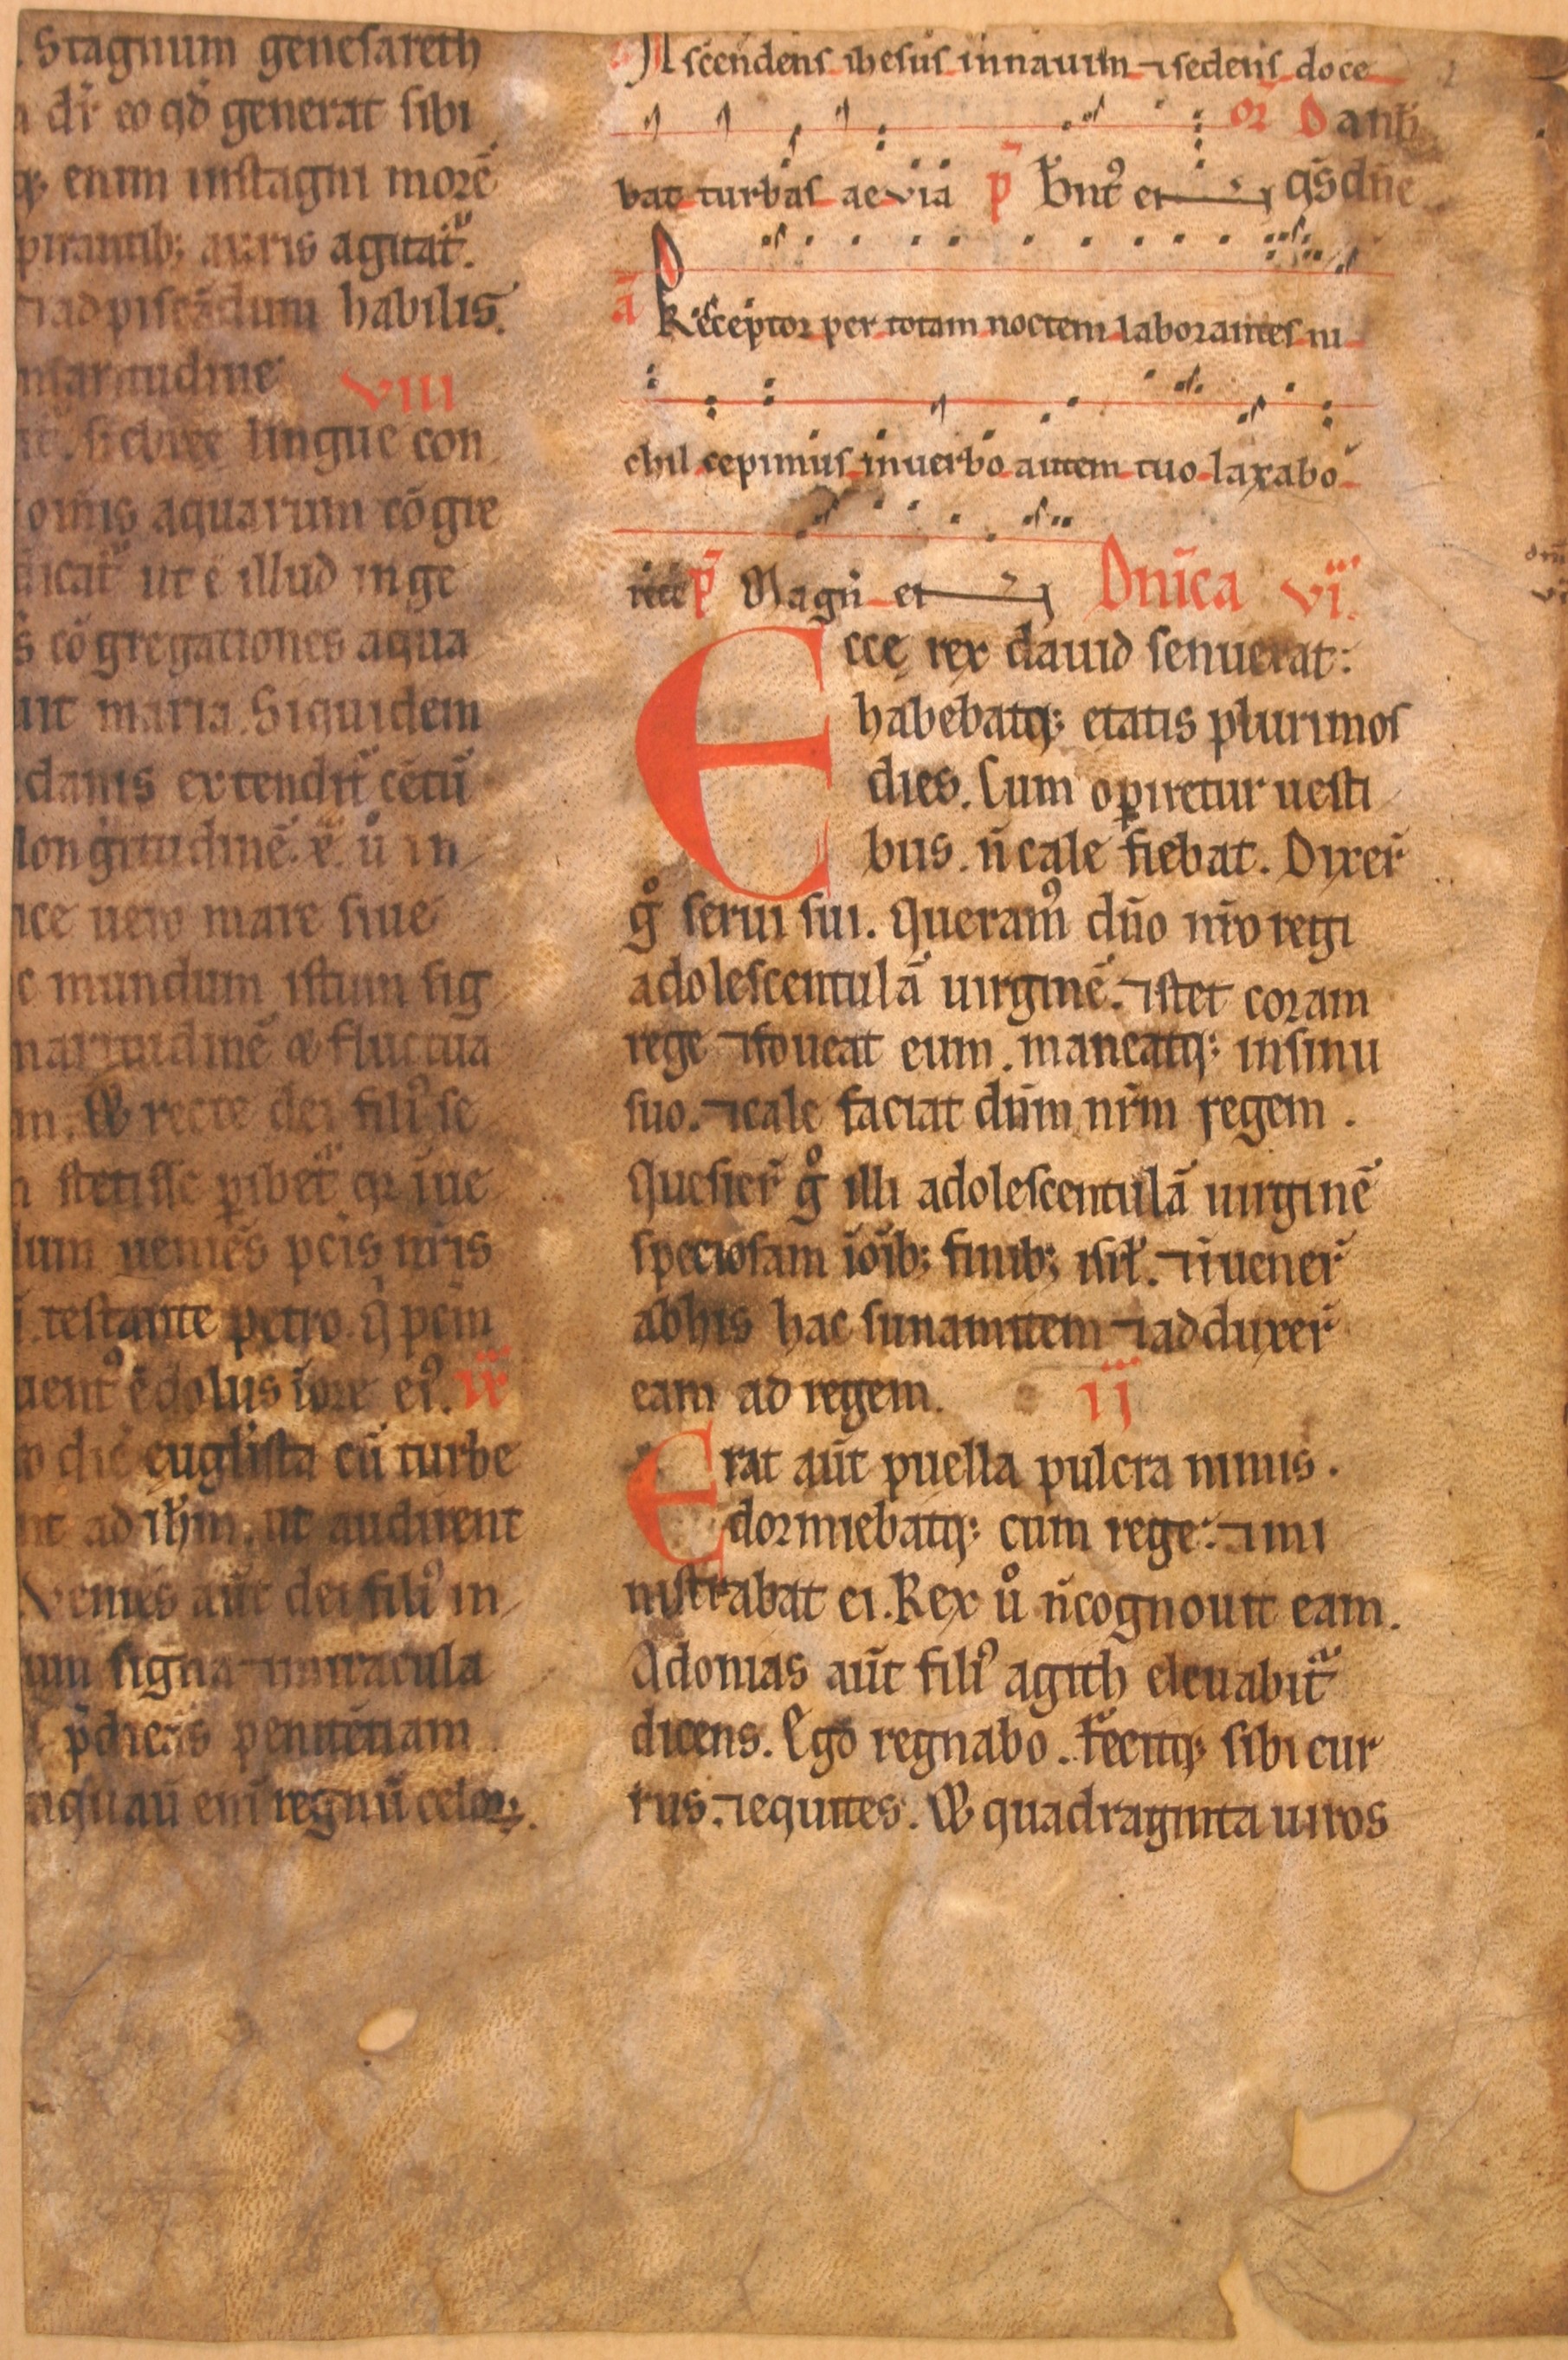 Stagnum genesareth
dr̄ eo qd̄ generat sibi
enim instagni morē
pirantib; auris agitat᷑.
⁊ad piscādum habilis.
maritudine VIII
lingue con
omīs aquarum cōgre
dicat᷑ ut ē illud inge
s cōgregationes aqua
uit maria. Siquidem
danis extendit᷑ cētū
longitudinē. ū in
uero mare siue
c mundum istum sig
maritudinē ⁊ fluctua
m. Et recte dei fili᷒ se
stetisse ꝑibet᷑ iue
dum ueniēs pc̄is nr̄is
testante petro. q̇ pc̄m
uent᷒ ē dolus iōre ei᷒. IX
die euglista cū turbe
nt ad ih̄m. ut audirent
Veniēs aūt dei fili᷒ in
signa ⁊miracula
p̄dicās penitētiam
aq̄uāū eni regnū celoꝝ.
Ascendens ihesus in nauim ⁊sedens doce
or̄ Dantƀ
bat turbas aevia p̄ Bn̄t᷒ et qs̄ dn̄e
ā Preceptor per totam noctem laborantes ni
chil cepimus in uerbo autem tuo laxabo
rete p̄ Magn̄ et Dn̄ica VI.
Eccę rex dauid senuerat:
habebatq; etatis plurimos
dies. Cum oꝑiretur uesti
bus. n̄ cale fiebat. Dixer̄
g̊ serui sui. Queram᷒ dn̄o nr̄o regi
adolescentulā uirginē. ⁊stet coram
rege ⁊foueat eum. maneatq; insinu
suo. ⁊cale faciat dn̄m nr̄m regem.
Quesier̄ g̊ illi adolescentulā uirginē
speciosam īoīb; finib; isrł. ⁊īuener̄
abhis hac sunamitem ⁊adduxer̄
eam ad regem. II
Erat aūt puella pulcra nimis.
dormiebatq; cum rege: ⁊mi
nistrabat ei. Rex ů n̄cognouit eam.
Adonias aūt fili᷒ agith eleuabit᷑
dicens. Ego regnabo. Fecitq; sibi cur
rus. ⁊equites. Et quadraginta uiros